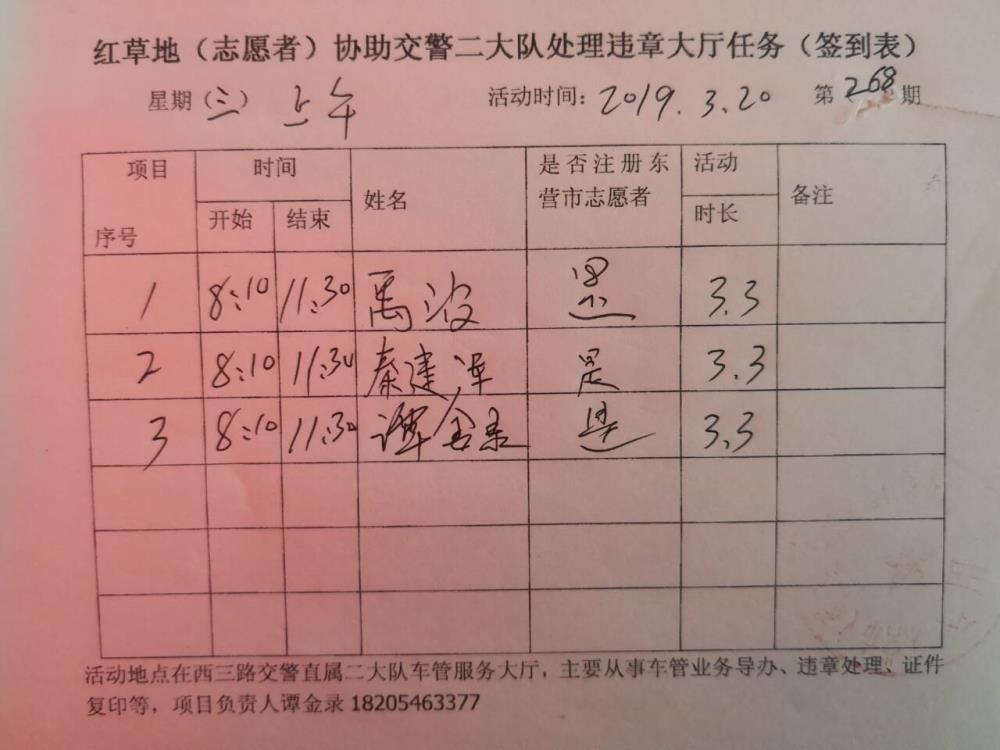 红草地（志愿者）协助交警二大队处理违章大厅任务（签到表）
星期（三） 上午 活动时间：2019.3.20 第268期
项目 时间 姓名 是否注册东营市志愿者 活动 备注
序号 开始 结束 时长
1 8:10 11:30 禹波 是 3.3
2 8:10 11:30 秦建军 是 3.3
3 8:10 11:30 谭金录 是 3.3
活动地点在西三路交警直属二大队车管服务大厅，主要从事车管业务导办、违章处理、证件
复印等，项目负责人谭金录 18205463377